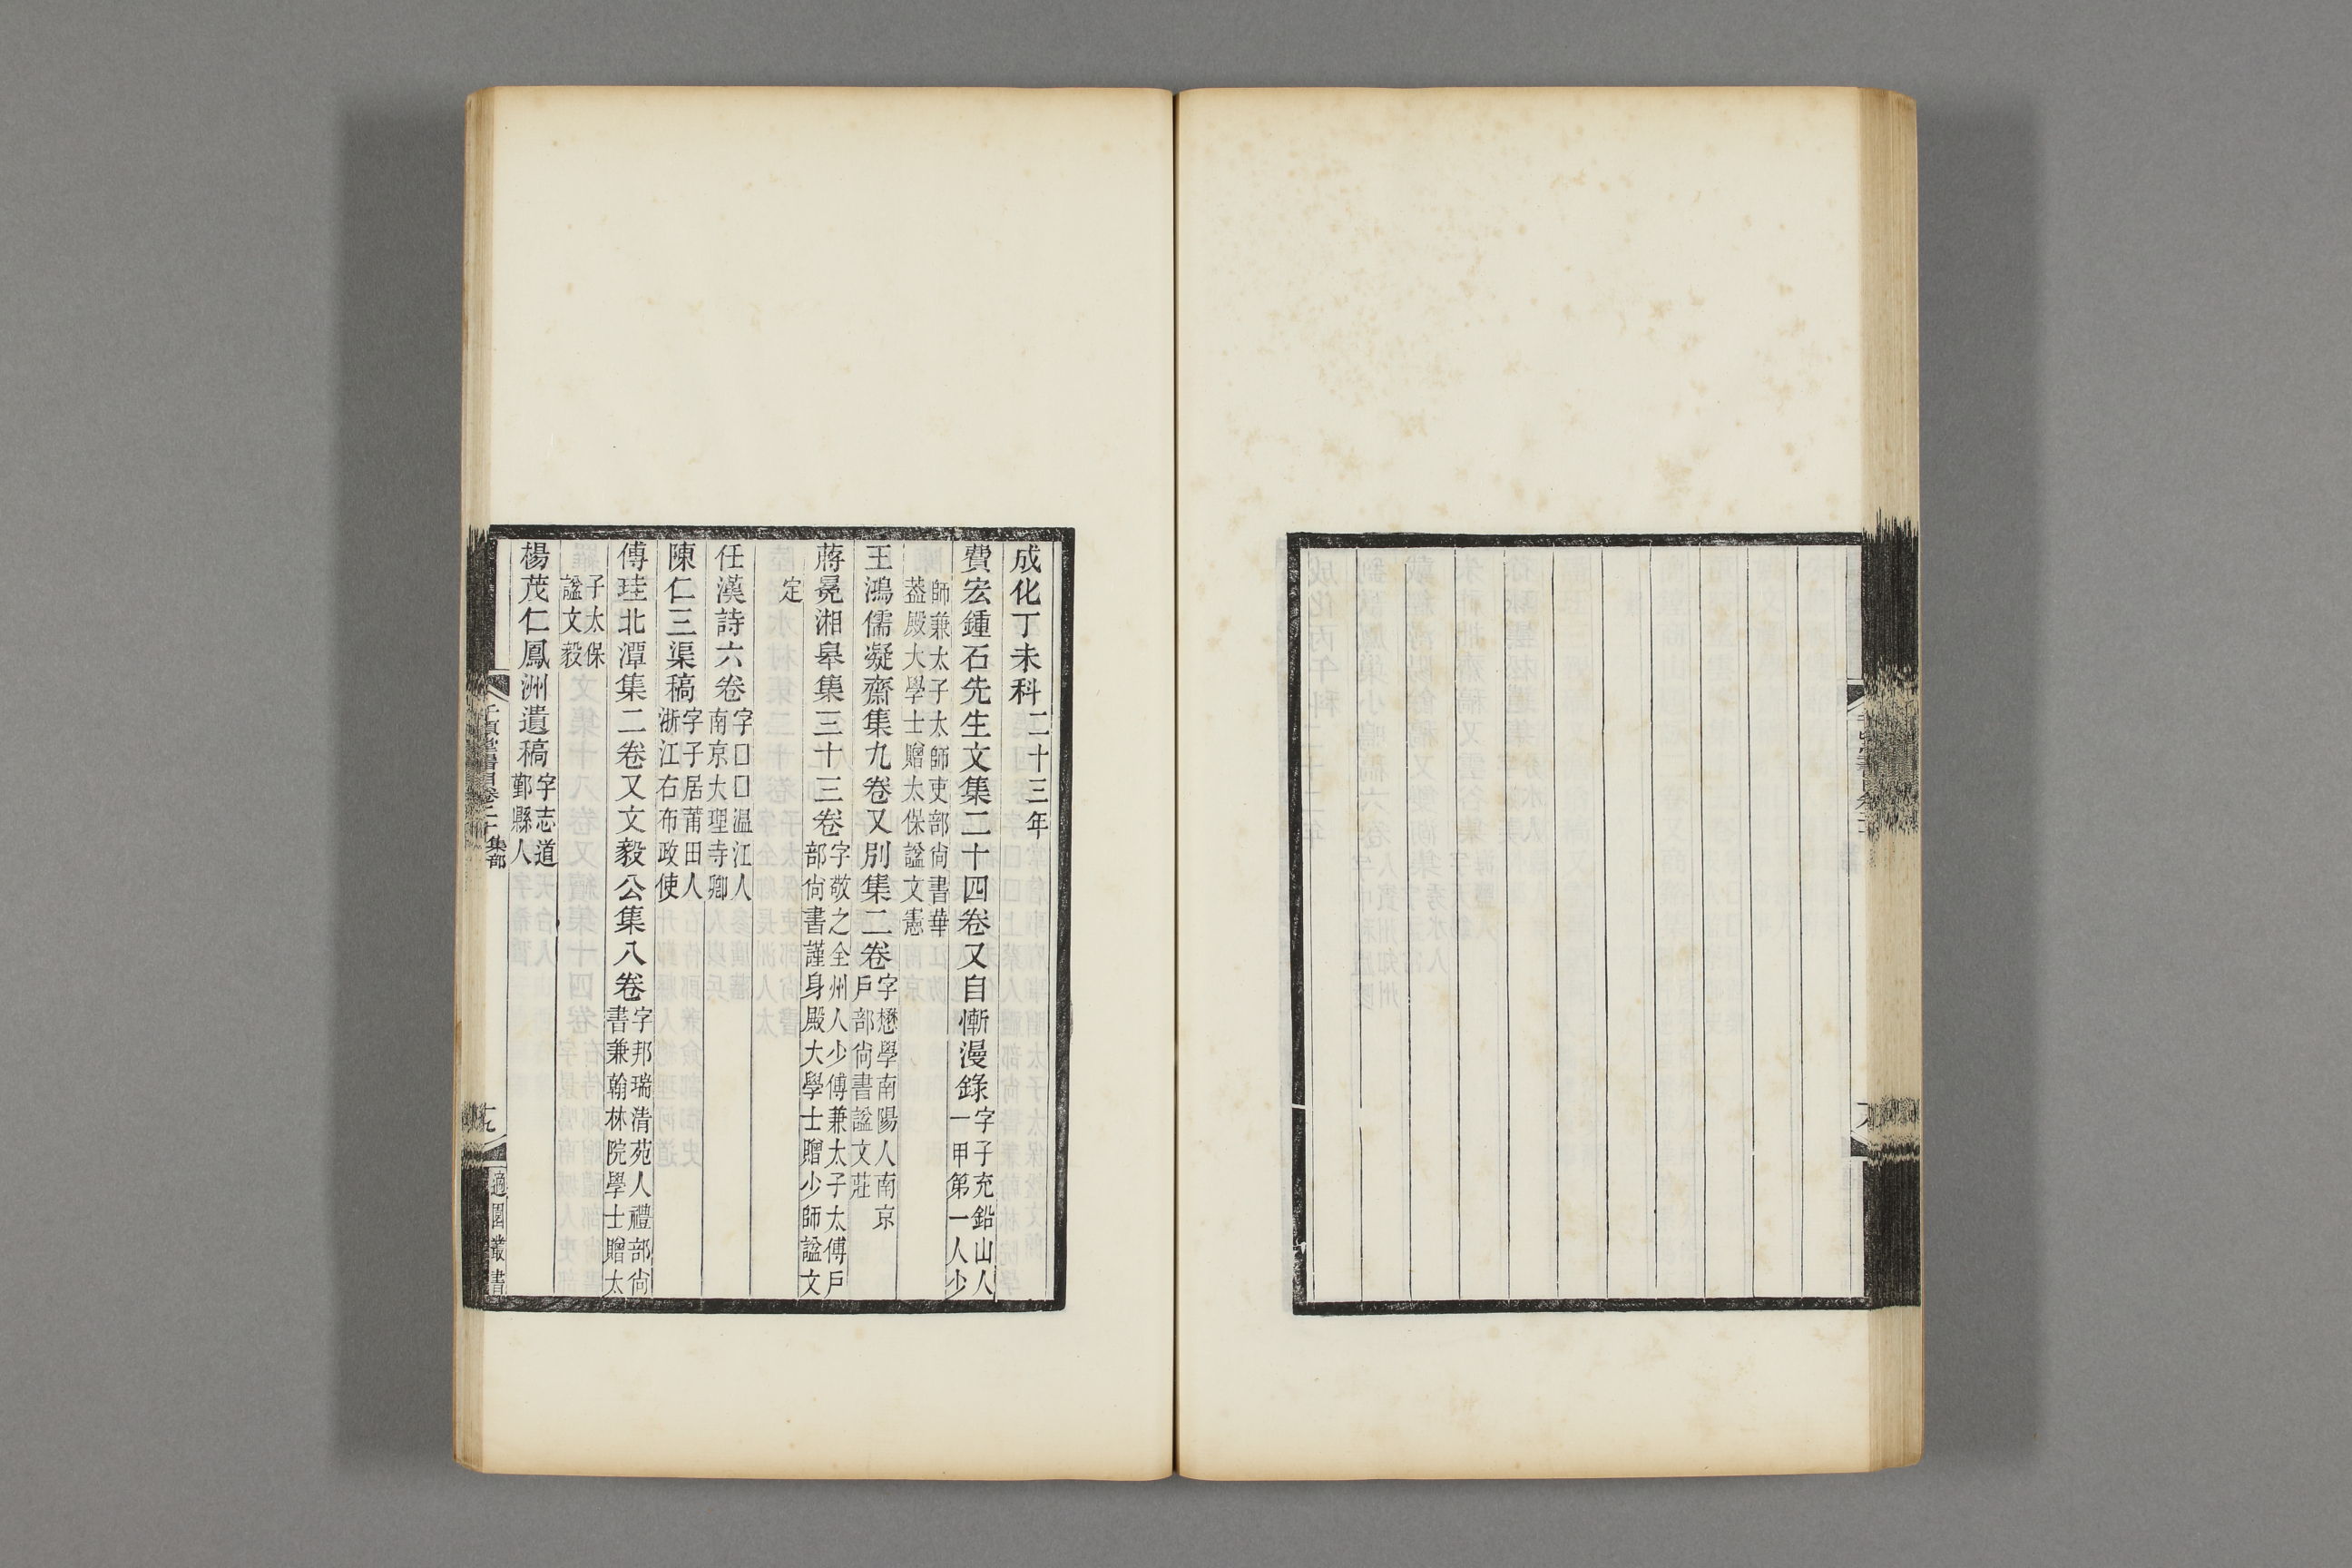 成化丁未科二十三年
費宏鍾石先生文集二十四卷又自慚漫錄字子充鉛山人一甲第一人少
師兼太子太師吏部尙書華葢殿大學士贈太保諡文憲
王鴻儒凝齋集九卷又別集二卷字懋學南陽人南京戶部尙書諡文莊
蔣冕湘皋集三十三卷字敬之全州人少傅兼太子太傅戶部尙書謹身殿大學士贈少師諡文
定
任漢詩六卷字□□温江人南京大理寺卿
陳仁三渠稿字子居莆田人浙江右布政使
傅珪北潭集二卷又文毅公集八卷字邦瑞清苑人禮部尙書兼翰林院學士贈太
子太保諡文毅
楊茂仁鳳洲遺稿字志道鄞縣人
千頃堂書目卷二十 集部
十九
適園叢書